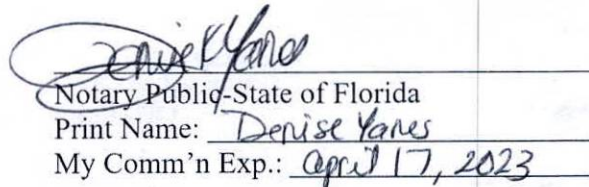 Denise Yanes
Notary Public-State of Florida
Print Name: Denise Yanes
My Comm'n Exp.: April 17, 2023